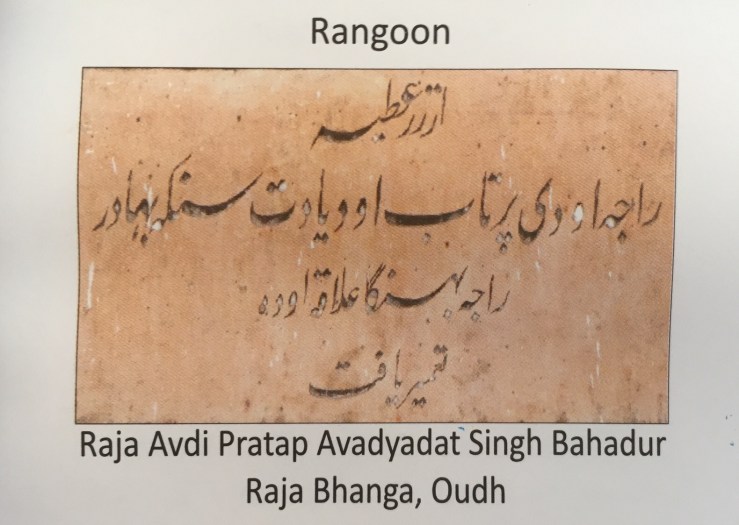 Rangoon
از زر عطیہ
راجہ اودی پرتاب اودیادت سنگہ بہادر
راجہ بہنگا علاقہ اودہ
تعمیر یافت
Raja Avdi Pratap Avadyadat Singh Bahadur
Raja Bhanga, Oudh